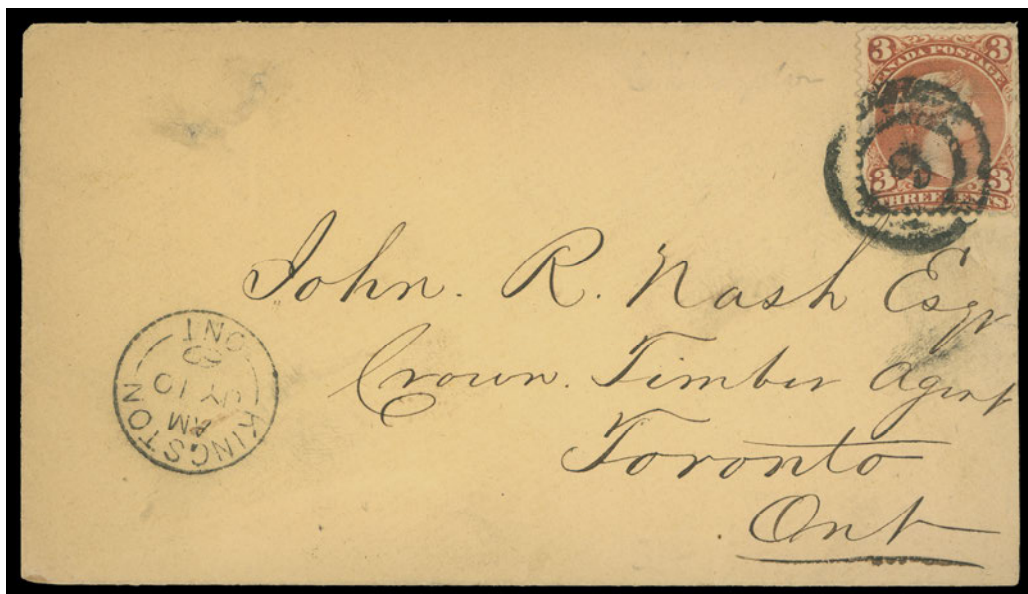 3 3
CANADA POSTAGE
3 3
THREE CENTS
John. R. Nash Esqr
Crown. Timber Agent
Toronto
Ont
KINGSTON
AM
JY 10
ONT